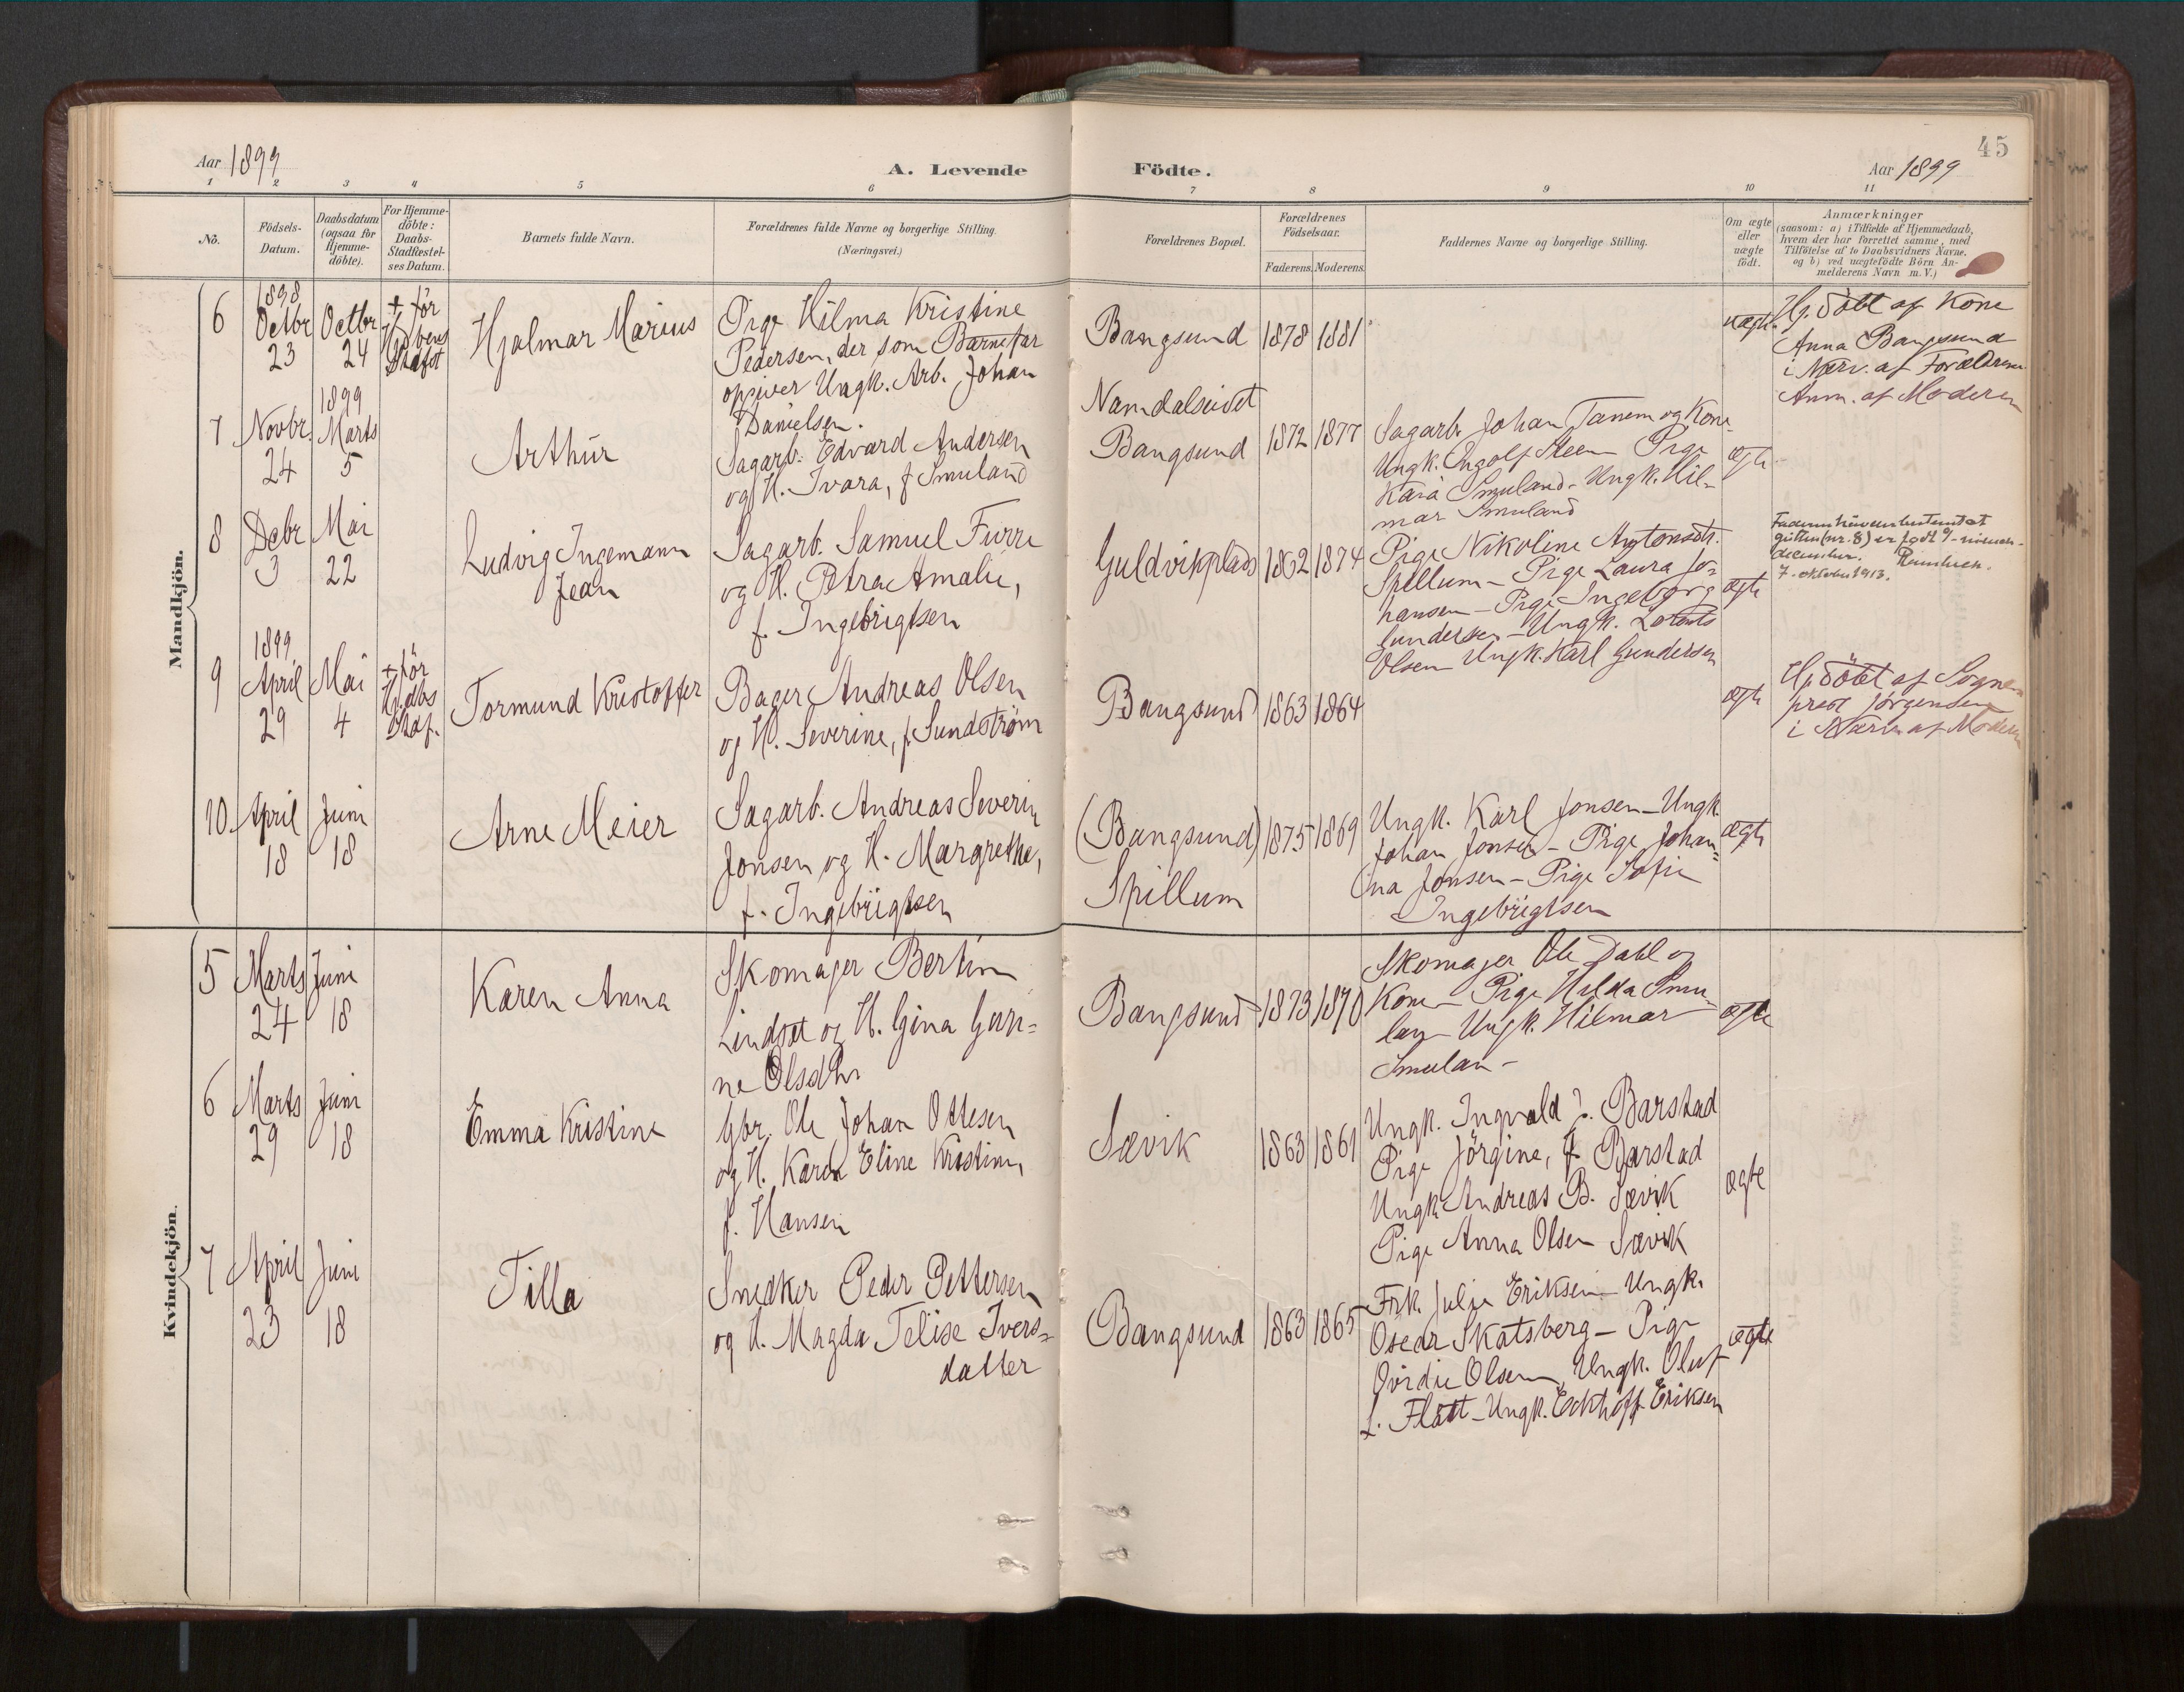 45
Aar 1899
A. Levende
Födte.
Aar 1899
1 2 3 4 5 6 7 8 9 10 11
No.
Födsels-
Datum.
Daabsdatum
(ogsaa for
Hjemme-
döbte).
For Hjemme-
döbte:
Daabs-
Stadfæstel-
ses Datum.
Barnets fulde Navn.
Forældrenes fulde Navne og borgerlige Stilling.
(Næringsvei.)
Forældrenes Bopæl.
Forældrenes
Födselsaar.
Faderens. Moderens.
Faddernes Navne og borgerlige Stilling.
Om ægte
eller
uægte
födt.
Anmærkninger
(saasom: a) i Tilfælde af Hjemmedaab,
hvem der har forrettet samme, med
Tilföielse af to Daabsvidners Navne,
og b) ved uægtefödte Börn An-
melderens Navn m. V.)
Mandkjön.
6
1898
Octbr
23
Octbr
24
+ för
Stafst
Hjalmar Marius
Pige Hilma Kristine
Pedersen, der som Barnefar
opgiver Ungk. Arb. Johan
Danielsen.
Bangsund
Namdalseidet
1878 1881
uægte
Hj. döbt af Kone
Anna Bangsund
i Nærv. af Forældrene
Anm. af Moderen
7
Novbr.
24
1899
Marts
5
Arthur
Sagarb. Edvard Andersen
og H. Ivara, f Smuland
Bangsund
1872 1877
Sagarb. Johan Tanem og Kone
Ungk. Ingolf Steen Pige
Kara Smuland - Ungk. Hil-
mar Smuland
ægte
8
Debr
3
Mai
22
Ludvig Ingemann
Jean
Sagarb. Samuel Furre
og H. Petra Amalie,
f. Ingebrigtsen
Guldvikplads
1862 1874
Pige Nikoline Antonsdtr.
Spillum - Pige Laura Jo-
hansen - Pige Ingeborg
Gundersen - Ungk.
Olsen Ungk. Karl Gundersen
ægte
gutten (nr. 8) er født
december.
7. oktober 1913.
9
1899
April
29
Mai
4
+ för
Hj.dbs
Staf.
Tormund Kristoffer
Bager Andreas Olsen
og H. Severine, f. Sundström
Bangsund
1863 1864
ægte
Hj. döbt af Sogne-
prest Jörgensen
i Nærv. af Moderen
10
April
18
Juni
18
Arne Meier
Sagarb. Andreas Severin
Jonsen og H. Margrethe,
f. Ingebrigtsen
(Bangsund)
Spillum
1875 1869
Ungk. Karl Jonsen - Ungk.
Johan Jonsen - Pige Johan-
na Jonsen - Pige Sofie
Ingebrigtsen
ægte
Kvindekjön.
5
Marts
24
Juni
18
Karen Anna
Skomager Bertin
Lindset og H. Gina Gun-
ne Olsdtr.
Bangsund
1873 1870
Skomager Ole Dahl og
Kone - Pige Hilda Smu-
lan - Ungk. Hilmar
Smulan -
ægte
6
Marts
29
Juni
18
Emma Kristine
Gbr. Ole Johan Ottesen
og H. Karen Eline Kristine,
f. Hansen
Sævik
1863 1861
Ungk. Ingvald J. Barstad
Pige Jörgine, J. Barstad
Ungk. Andreas B. Sævik
Pige Anna Olsen Sævik
ægte
7
April
23
Juni
18
Tilla
Snedker Peder Pettersen
og H. Magda Telise Ivers-
datter
Bangsund
1863 1865
Frk. Julie Eriksen - Ungk.
Oscar Skatsberg - Pige
Ovidie Olsen, Ungk. Oluf
L. Flått - Ungk. Eckhoff Eriksen
ægte